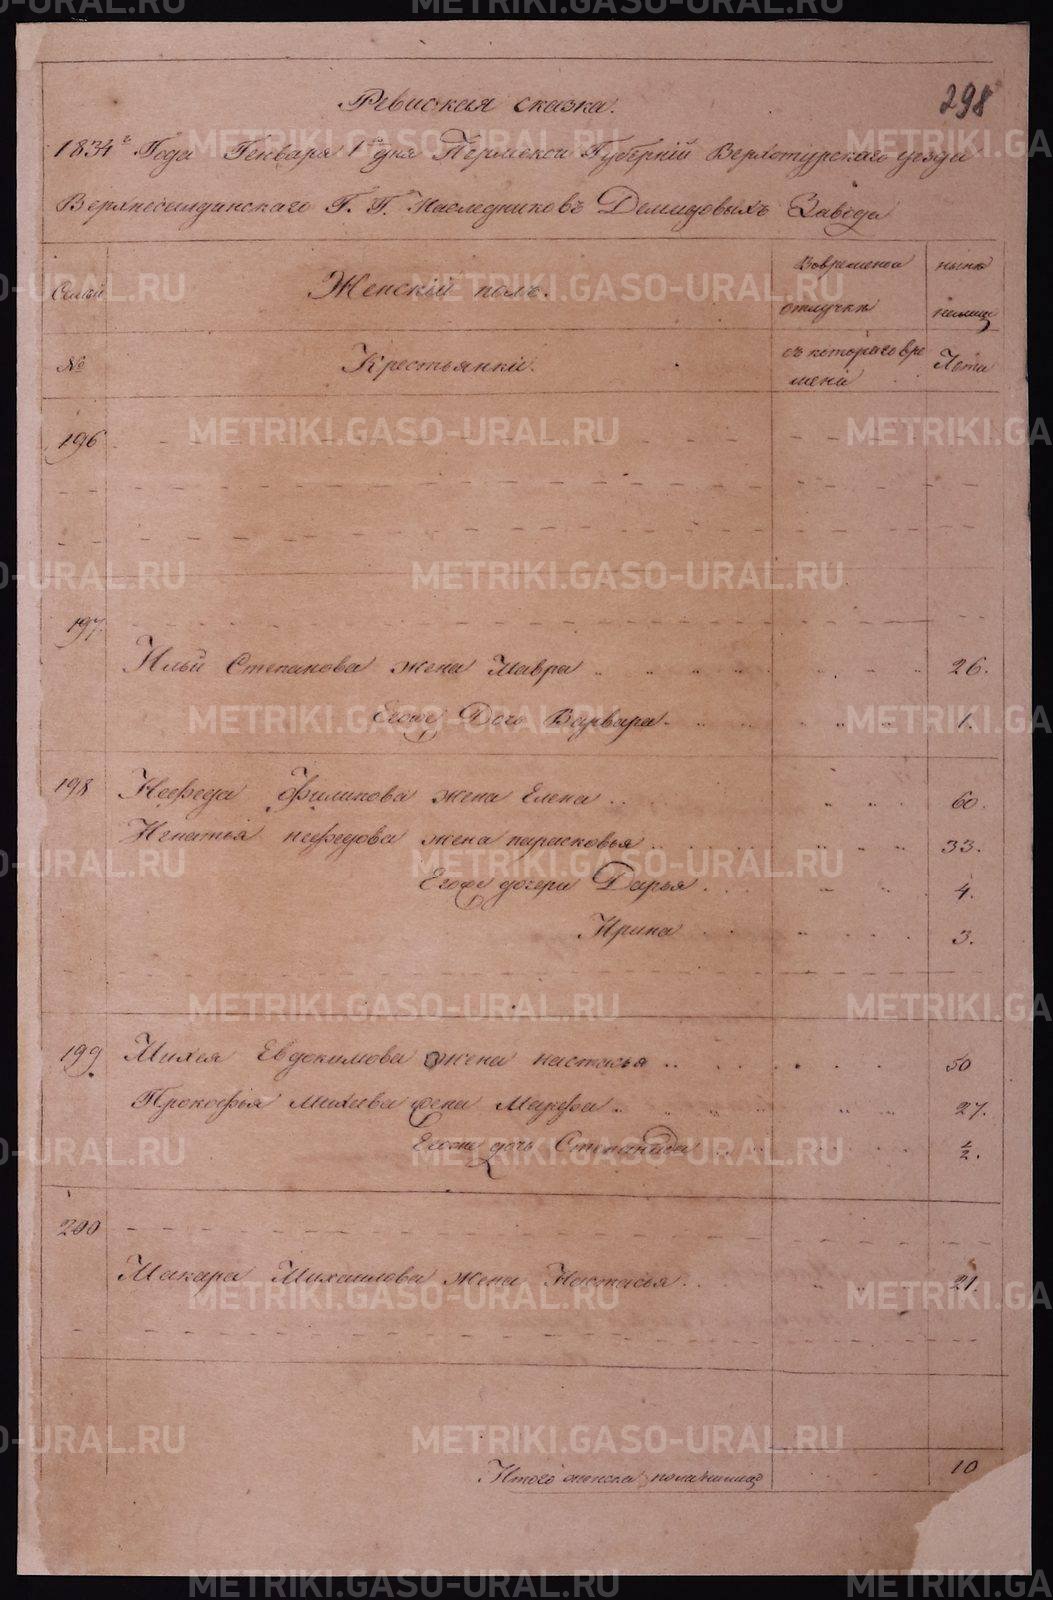 298
Ревиская сказка.
1834го Года Генваря 1го дня Пермской Губерній Верхотурскаго уезда
Верхнесалдинскаго Г. Г. Наследниковъ Демидовыхъ Завода
Семьи Женскій полъ. Вовременной отлучки ныне налицо
№ Крестьянки. съ котораго времени Лета
196
197.
Ильи Степанова жена Мавра 26.
Егоже Дочь Варвара 1.
198 Нефеда Филипова жена Елена 60.
Игнатья нефедова жена парасковья 33.
Егоже дочери Дарья 4.
Ирина 3.
199 Михея Евдокимова жена настасья 50
Прокофья михиева жена Марфа 27.
Егоже дочь Степанида 1/2.
200
Макара Михаилова жена Настасья 21.
Итого женска пола налицо 10
METRIKI.GASO-URAL.RU